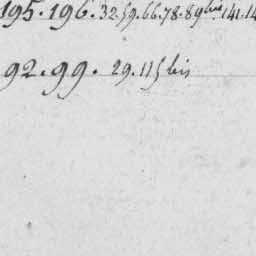 195. 196. 32. 59. 66. 78. 89 bis 141. 14
92. 99. 29. 115 bis